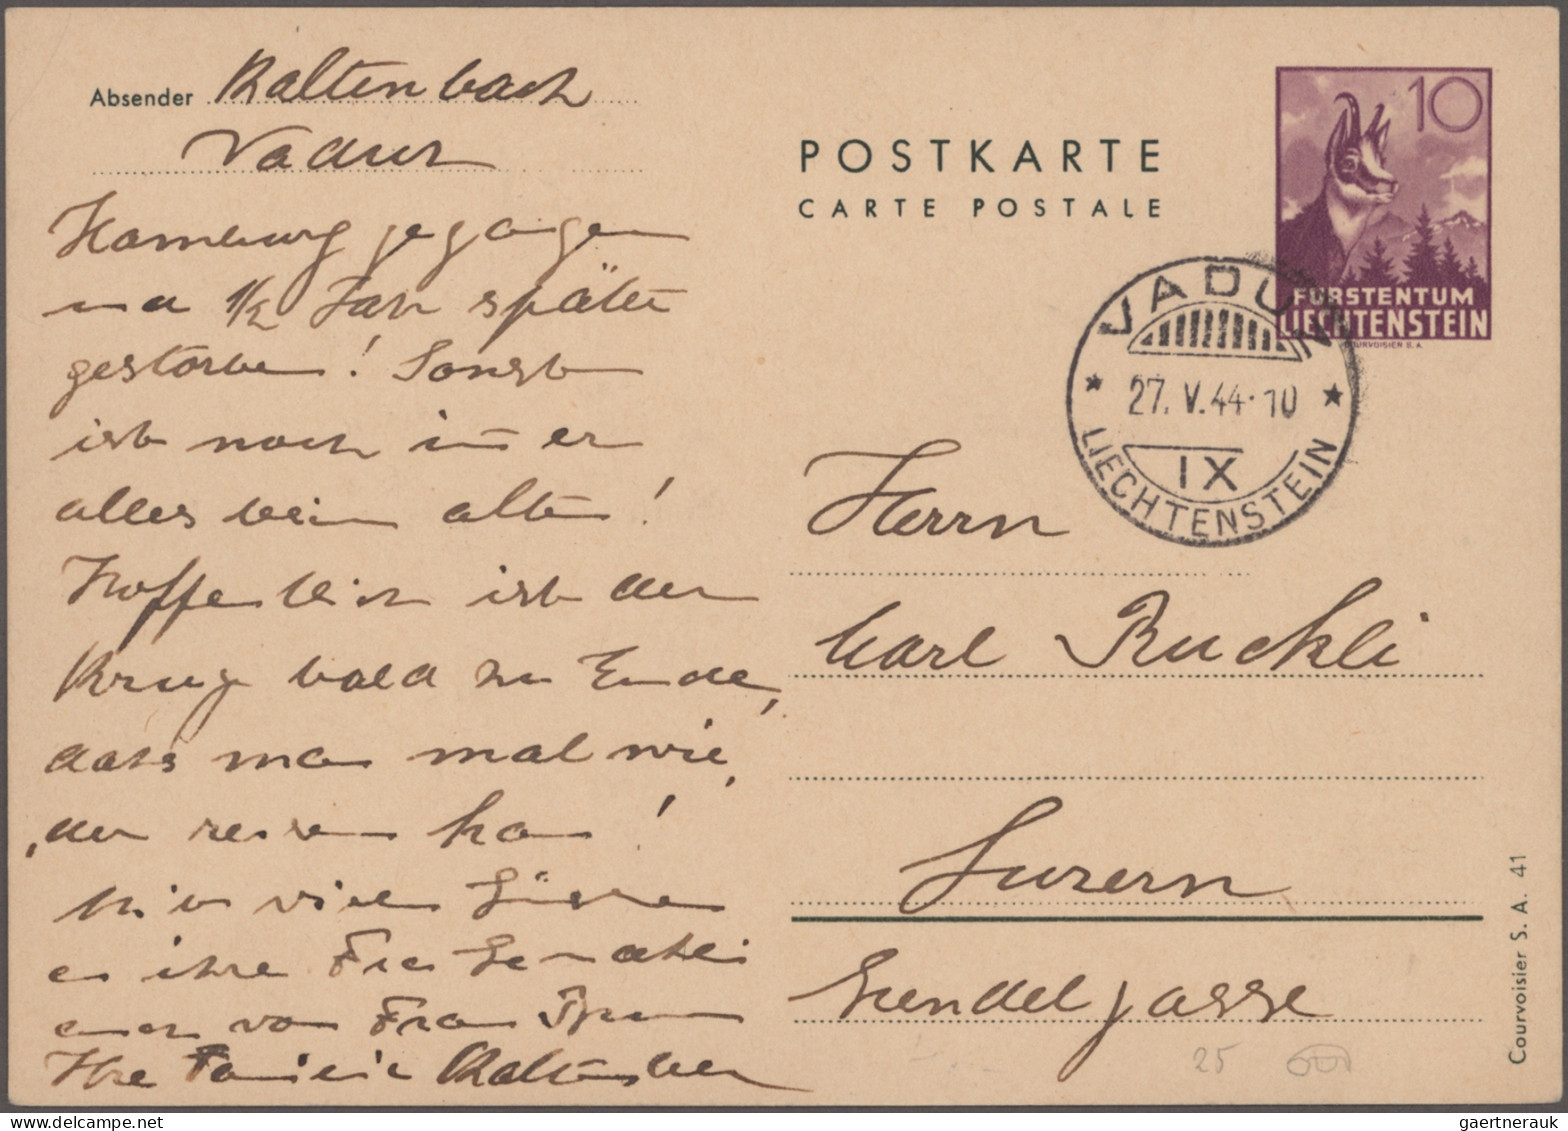 Absender Kaltenbach
Vaduz
Hamburg gegangen
1/2 Jahr später
gestorben! Sonst
ist noch immer
alles beim alten!
Hoffentlich ist der
Krieg bald zu Ende,
dass man mal wieder
reisen kann!
Mit viele Grüsse
an ihre Frau Gemahlin
auch von Frau
Ihre Familie Kaltenbach
POSTKARTE
CARTE POSTALE
10
FÜRSTENTUM
LIECHTENSTEIN
COURVOISIER S.A.
VADUZ
27. V. 44-10
IX
LIECHTENSTEIN
Herrn
Carl Ruckli
Luzern
Grendelgasse
25
Courvoisier S. A. 41
gaertnerauk